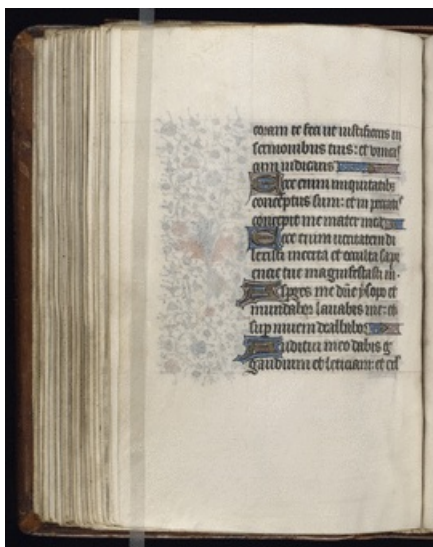 coram te feci ut iustificeris in
sermonibus tuis: et vincas
cum iudicaris
Ecce enim iniquitatibs
conceptus sum: et in peccatis
concepit me mater mea
Ecce enim veritatem di
lexisti incerta et occulta sapi
encie tue magnifestasti m.
Asperges me dñe ysopo et
mundabor lavabis me: et
sup nivem dealbabor
Auditui meo dabis g
gaudium et leticiam: et